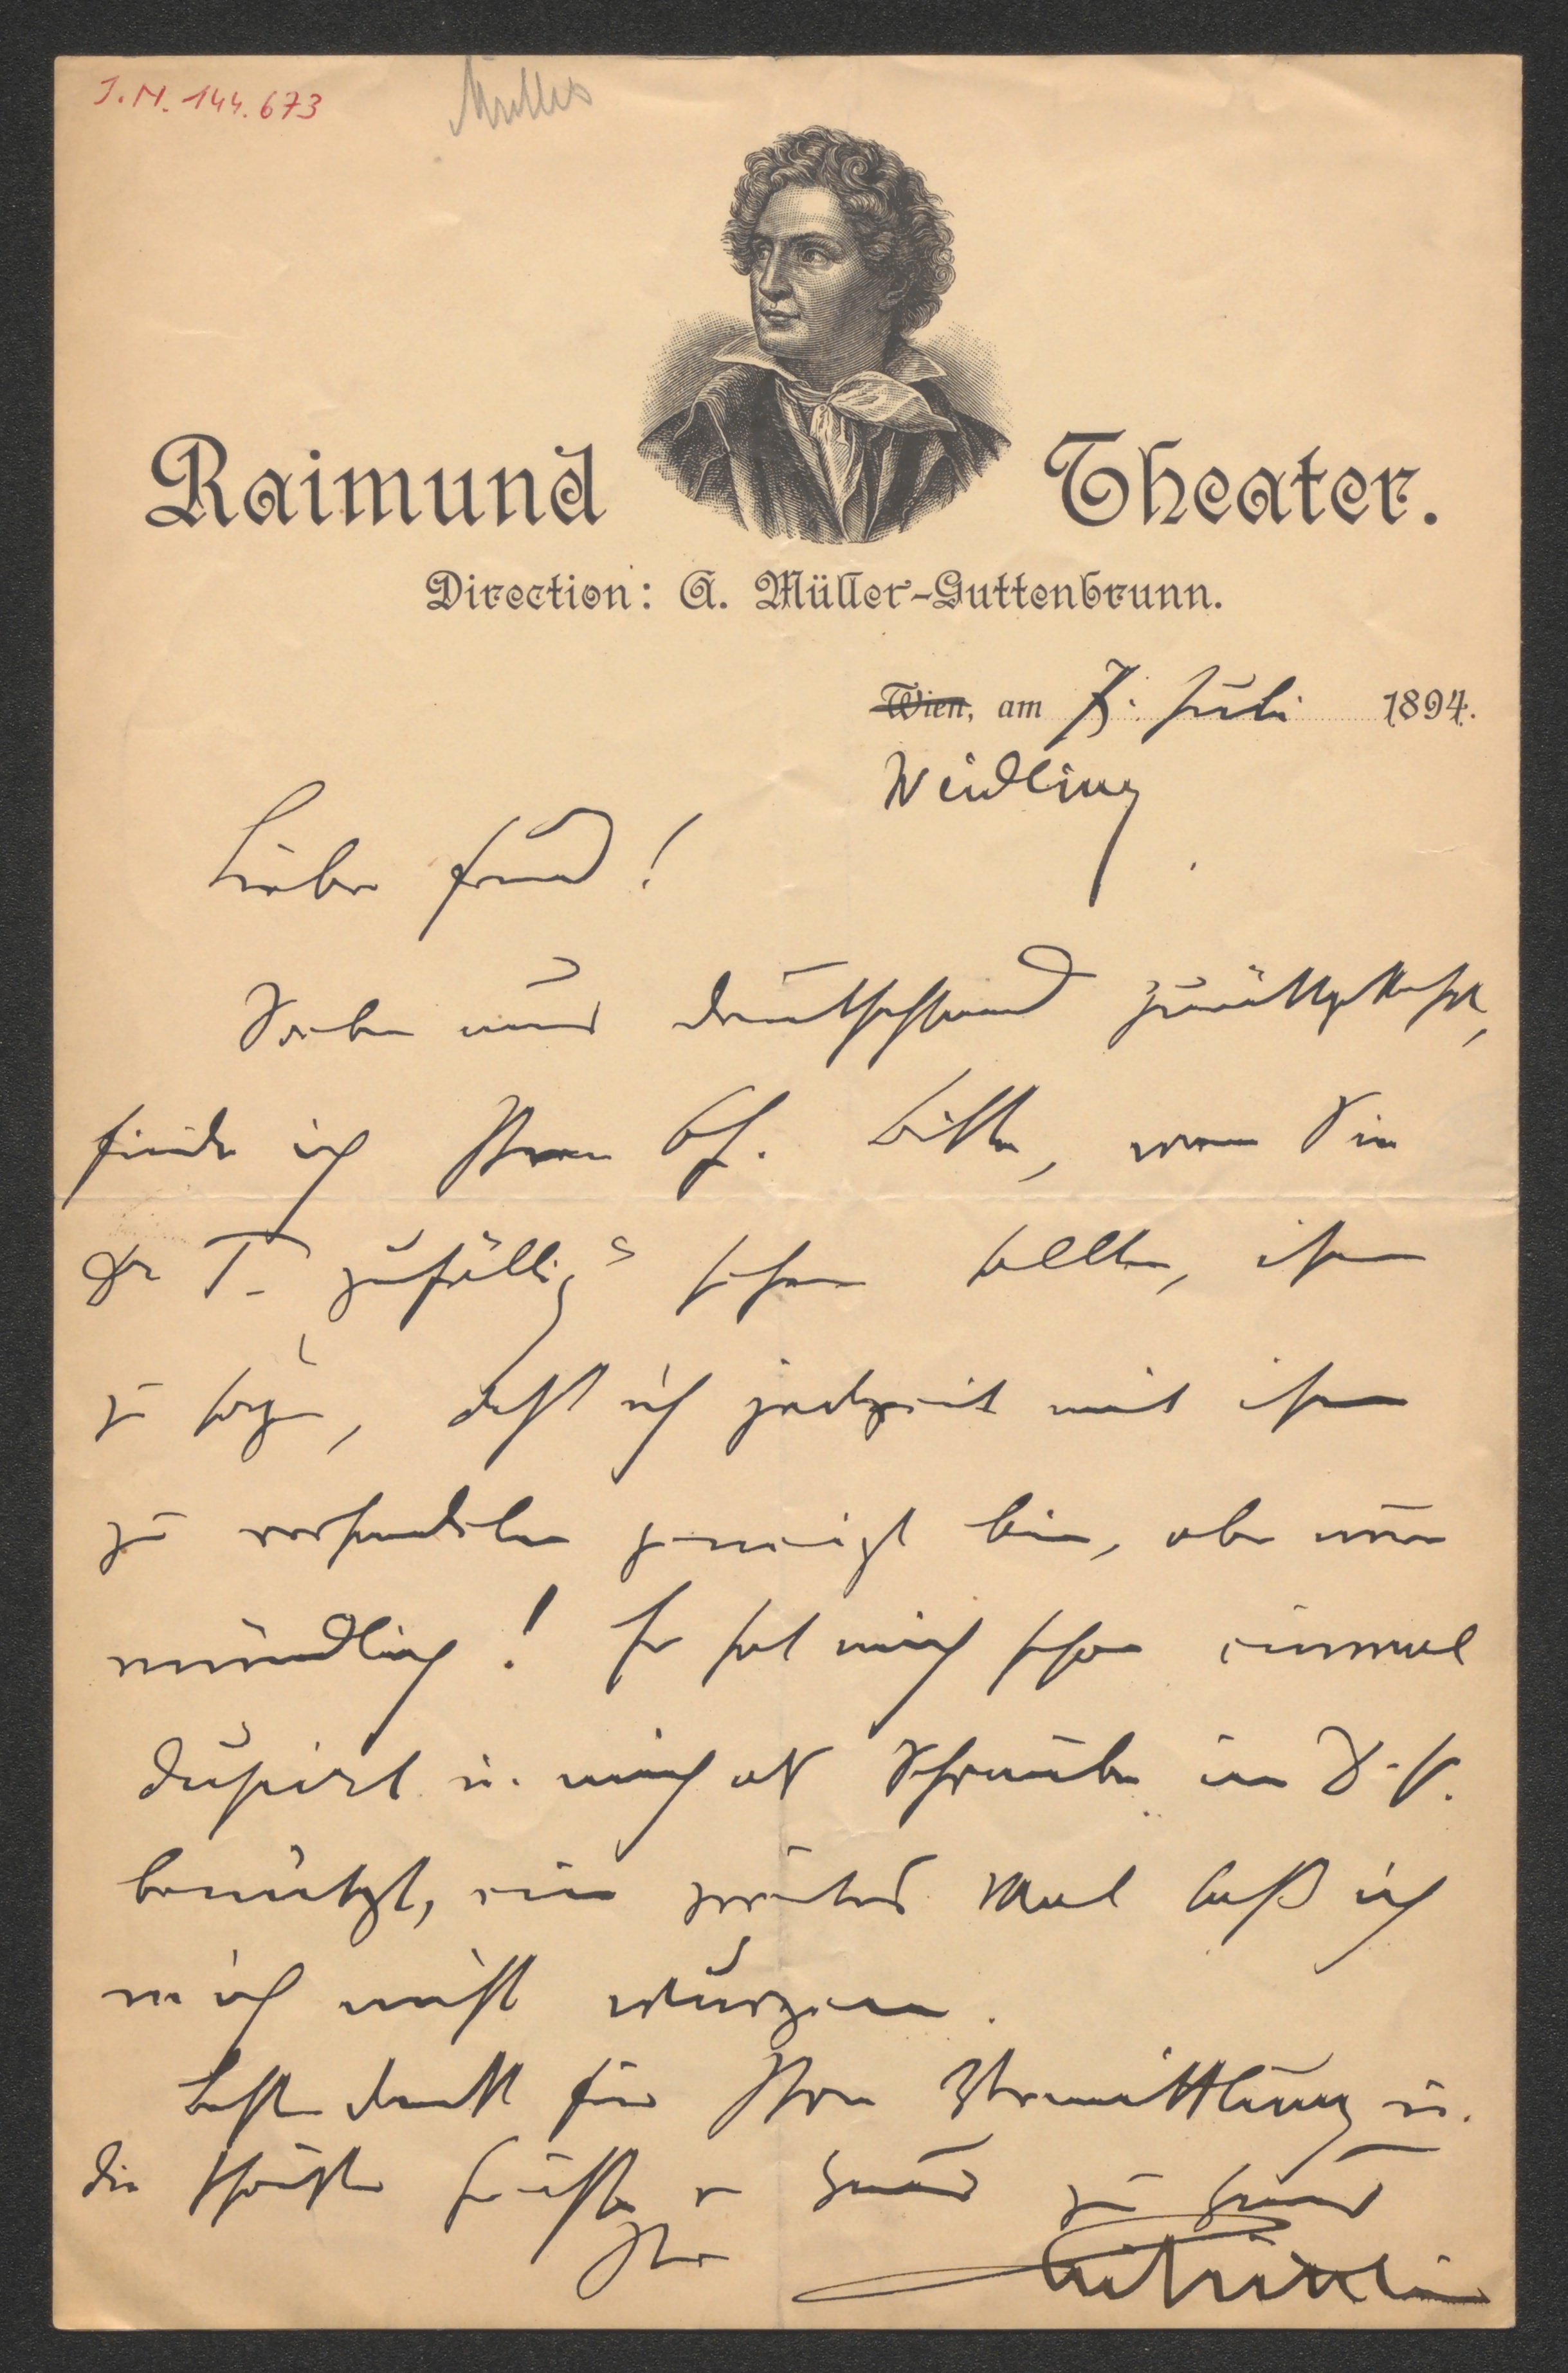 J.N. 144.673
Müller
Raimund Theater.
Direction: A. Müller-Guttenbrunn.
Wien, am 7. Juli 1894.
Weidling
Lieber Freund!
Soeben aus Deutschland zurückgekehrt,
finde ich Ihren Bf. Bitte, wenn Sie
Dr T. zufällig sehen sollten, ihm
zu sagen, daß ich jederzeit mit ihm
zu verhandeln geneigt bin, aber nur
mündlich! Er hat mich schon einmal
dupirt u. mich als Schraube im
benützt, ein zweites Mal laß ich
mich nicht wurzen.
Besten Dank für Ihre Vermittlung u.
die schönsten Grüße v Haus zu Haus
Ihr